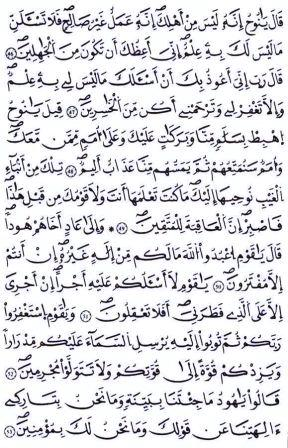 قَالَ يَٰنُوحُ إِنَّهُۥ لَيْسَ مِنْ أَهْلِكَ إِنَّهُۥ عَمَلٌ غَيْرُ صَٰلِحٍ فَلَا تَسْـَٔلَنِّ
مَا لَيْسَ لَكَ بِهِۦ عِلْمٌ إِنِّيَ أَعِظُكَ أَن تَكُونَ مِنَ ٱلْجَٰهِلِينَ
قَالَ رَبِّ إِنِّيَ أَعُوذُ بِكَ أَنْ أَسْـَٔلَكَ مَا لَيْسَ لِي بِهِۦ عِلْمٌ
وَإِلَّا تَغْفِرْ لِي وَتَرْحَمْنِي أَكُن مِّنَ ٱلْخَٰسِرِينَ قِيلَ يَٰنُوحُ
ٱهْبِطْ بِسَلَٰمٍ مِّنَّا وَبَرَكَٰتٍ عَلَيْكَ وَعَلَىٰ أُمَمٍ مِّمَّن مَّعَكَ
وَأُمَمٌ سَنُمَتِّعُهُمْ ثُمَّ يَمَسُّهُم مِّنَّا عَذَابٌ أَلِيمٌ تِلْكَ مِنْ أَنۢبَآءِ
ٱلْغَيْبِ نُوحِيهَآ إِلَيْكَ مَا كُنتَ تَعْلَمُهَآ أَنتَ وَلَا قَوْمُكَ مِن قَبْلِ هَٰذَا
فَٱصْبِرْ إِنَّ ٱلْعَٰقِبَةَ لِلْمُتَّقِينَ وَإِلَىٰ عَادٍ أَخَاهُمْ هُودًا
قَالَ يَٰقَوْمِ ٱعْبُدُوا۟ ٱللَّهَ مَا لَكُم مِّنْ إِلَٰهٍ غَيْرُهُۥ إِنْ أَنتُمْ
إِلَّا مُفْتَرُونَ يَٰقَوْمِ لَآ أَسْـَٔلُكُمْ عَلَيْهِ أَجْرًا إِنْ أَجْرِيَ
إِلَّا عَلَى ٱلَّذِي فَطَرَنِيَ أَفَلَا تَعْقِلُونَ وَيَٰقَوْمِ ٱسْتَغْفِرُوا۟
رَبَّكُمْ ثُمَّ تُوبُوٓا۟ إِلَيْهِ يُرْسِلِ ٱلسَّمَآءَ عَلَيْكُم مِّدْرَارًا
وَيَزِدْكُمْ قُوَّةً إِلَىٰ قُوَّتِكُمْ وَلَا تَتَوَلَّوْا۟ مُجْرِمِينَ
قَالُوا۟ يَٰهُودُ مَا جِئْتَنَا بِبَيِّنَةٍ وَمَا نَحْنُ بِتَارِكِي
ءَالِهَتِنَا عَن قَوْلِكَ وَمَا نَحْنُ لَكَ بِمُؤْمِنِينَ